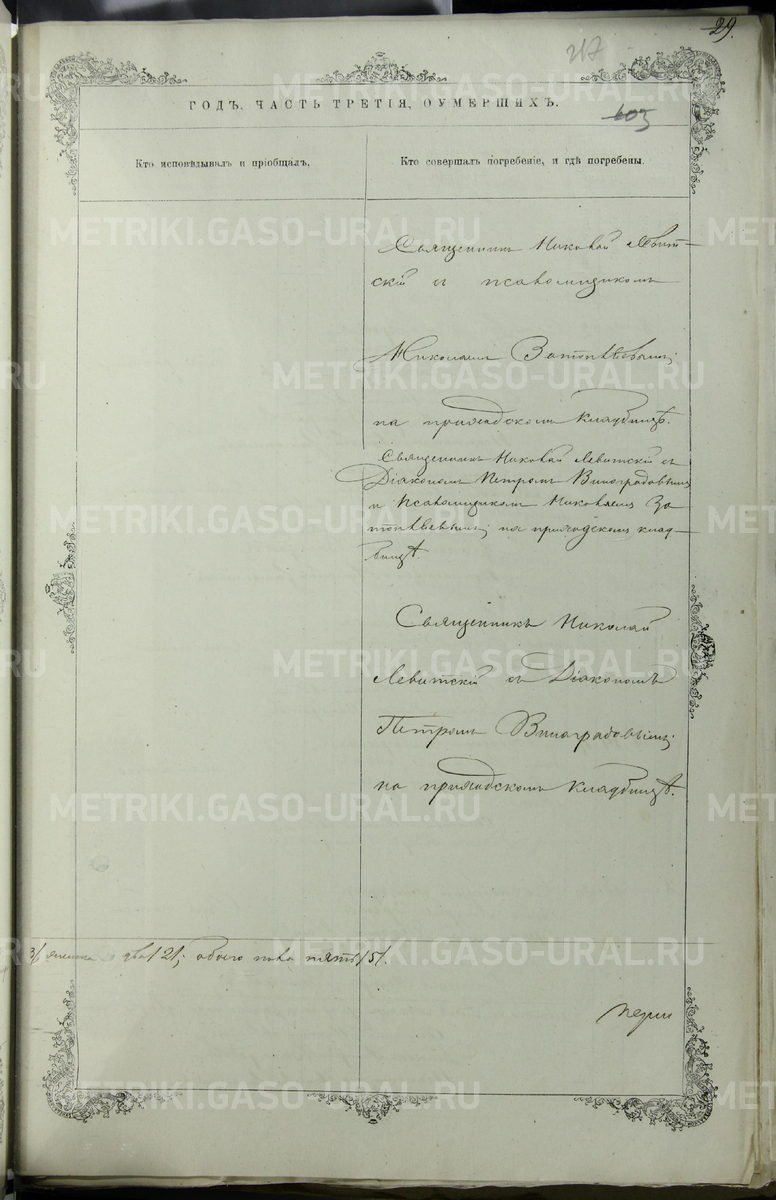 29.
217
603
ГОДЪ, ЧАСТЬ ТРЕТІЯ, ОУМЕРШИХЪ.
Кто исповѣдывалъ и пріобщалъ.
Кто совершалъ погребеніе, и гдѣ погребены.
Священникъ Николай Левит-
скій съ псаломщикомъ
Николаемъ
на приходскомъ кладбищѣ.
Священникъ Николай Левитскій съ
Діакономъ Петромъ Виноградовымъ
и Псаломщикомъ Николаемъ
на приходскомъ клад-
бищѣ
Священникъ Николай
Левитскій съ Діакономъ
Петромъ Виноградовымъ;
на приходскомъ кладбищѣ.
3/ два /2/; обоего пола пять /5/.
METRIKI.GASO-URAL.RU